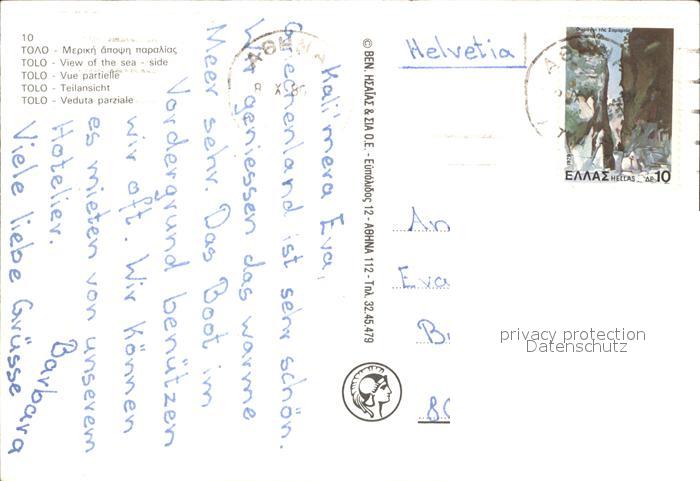 10
ΤΟΛΟ - Μερική άποψη παραλίας
TOLO - View of the sea - side
TOLO - Vue partielle
TOLO - Teilansicht
TOLO - Veduta parziale
Kali'mera Eva,
Griechenland ist sehr schön.
Wir geniessen das warme
Meer sehr. Das Boot im
Vordergrund benützen
wir oft. Wir können
es mieten von unserem
Hotelier.
Viele liebe Grüsse
Barbara
© ΒΕΝ. ΗΣΑΪΑΣ & ΣΙΑ Ο.Ε. - Εὐπόλιδος 12 - ΑΘΗΝΑ 112 - Τηλ. 32.45.479
ΑΘΗΝΑ
Helvetia
ΕΛΛΑΣ HELLAS ΔΡ 10
An
Eva
privacy protection
Datenschutz